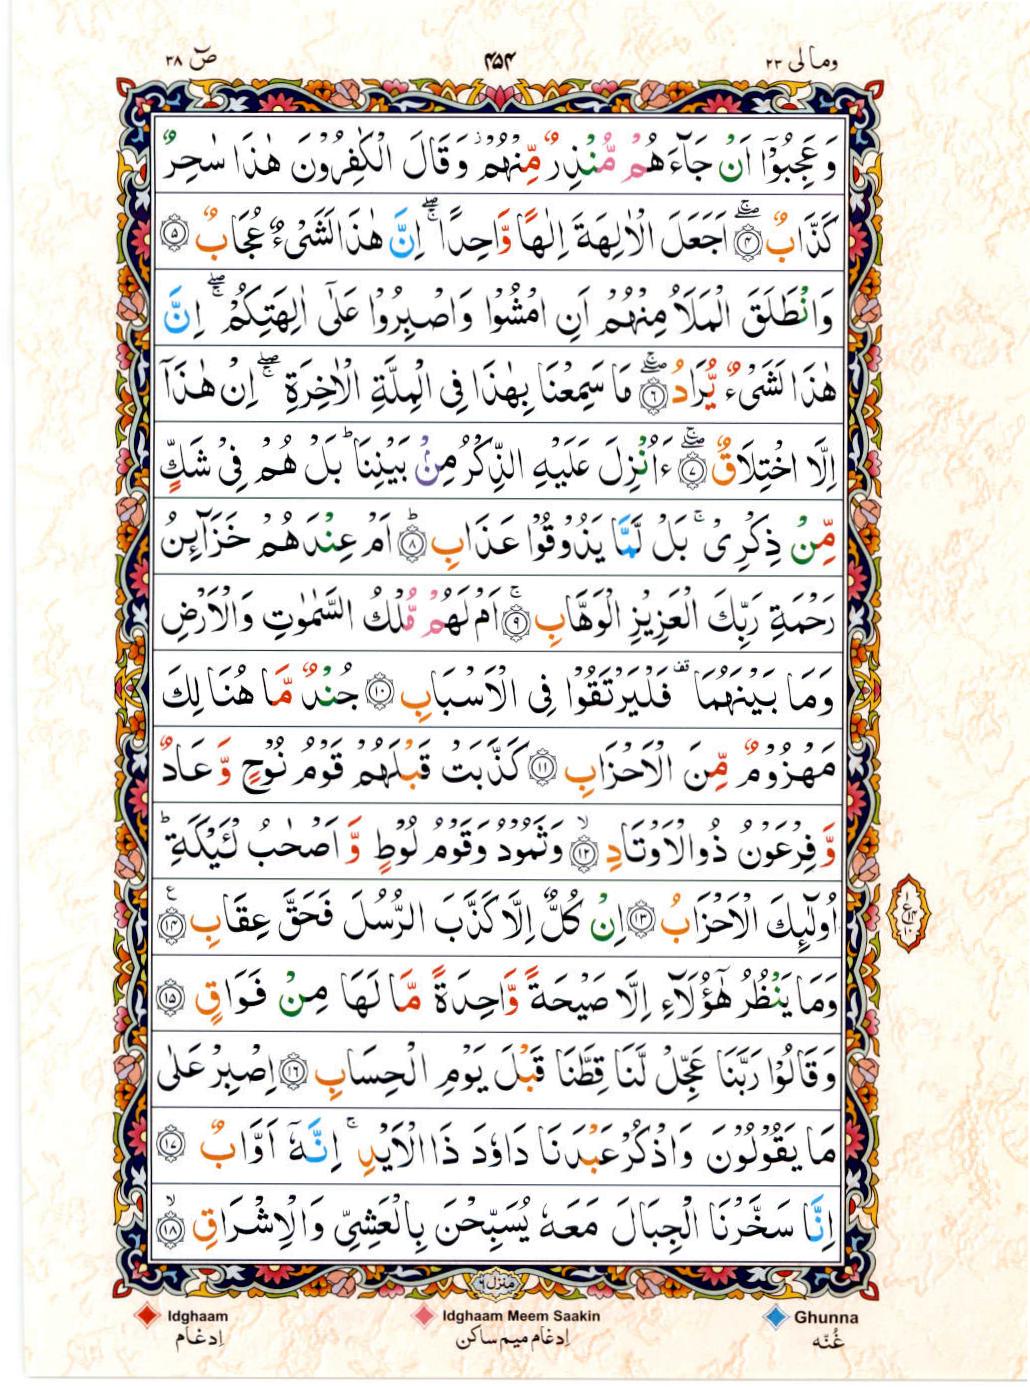 ومالی ۲۳
۴۵۴
صٓ ۳۸
وَعَجِبُوْۤا اَنْ جَآءَهُمْ مُّنْذِرٌ مِّنْهُمْ ؗ وَقَالَ الْكٰفِرُوْنَ هٰذَا سٰحِرٌ
كَذَّابٌ ۖۚ ﴿۴﴾ اَجَعَلَ الْاٰلِهَةَ اِلٰهًا وَّاحِدًا ۖۚ اِنَّ هٰذَا لَشَیْءٌ عُجَابٌ ﴿۵﴾
وَانْطَلَقَ الْمَلَاُ مِنْهُمْ اَنِ امْشُوْا وَاصْبِرُوْا عَلٰۤی اٰلِهَتِكُمْ ۖۚ اِنَّ
هٰذَا لَشَیْءٌ یُّرَادُ ۖۚ ﴿۶﴾ مَا سَمِعْنَا بِهٰذَا فِی الْمِلَّةِ الْاٰخِرَةِ ۖۚ اِنْ هٰذَاۤ
اِلَّا اخْتِلَاقٌ ۖۚ ﴿۷﴾ ءَاُنْزِلَ عَلَیْهِ الذِّكْرُ مِنْۢ بَیْنِنَا ؕ بَلْ هُمْ فِیْ شَكٍّ
مِّنْ ذِكْرِیْ ۚ بَلْ لَّمَّا یَذُوْقُوْا عَذَابِ ؕ ﴿۸﴾ اَمْ عِنْدَهُمْ خَزَآئِنُ
رَحْمَةِ رَبِّكَ الْعَزِیْزِ الْوَهَّابِ ۚ ﴿۹﴾ اَمْ لَهُمْ مُّلْكُ السَّمٰوٰتِ وَالْاَرْضِ
وَمَا بَیْنَهُمَا ࣞ فَلْیَرْتَقُوْا فِی الْاَسْبَابِ ﴿۱۰﴾ جُنْدٌ مَّا هُنَالِكَ
مَهْزُوْمٌ مِّنَ الْاَحْزَابِ ﴿۱۱﴾ كَذَّبَتْ قَبْلَهُمْ قَوْمُ نُوْحٍ وَّعَادٌ
وَّفِرْعَوْنُ ذُوالْاَوْتَادِ ۙ ﴿۱۲﴾ وَثَمُوْدُ وَقَوْمُ لُوْطٍ وَّاَصْحٰبُ لْـَٔیْكَةِ ؕ
اُولٰٓئِكَ الْاَحْزَابُ ﴿۱۳﴾ اِنْ كُلٌّ اِلَّا كَذَّبَ الرُّسُلَ فَحَقَّ عِقَابِ ﴿۱۴﴾ ع
وَمَا یَنْظُرُ هٰۤؤُلَآءِ اِلَّا صَیْحَةً وَّاحِدَةً مَّا لَهَا مِنْ فَوَاقٍ ﴿۱۵﴾
وَقَالُوْا رَبَّنَا عَجِّلْ لَّنَا قِطَّنَا قَبْلَ یَوْمِ الْحِسَابِ ﴿۱۶﴾ اِصْبِرْ عَلٰی
مَا یَقُوْلُوْنَ وَاذْكُرْ عَبْدَنَا دَاوٗدَ ذَا الْاَیْدِ ۚ اِنَّهٗۤ اَوَّابٌ ﴿۱۷﴾
اِنَّا سَخَّرْنَا الْجِبَالَ مَعَهٗ یُسَبِّحْنَ بِالْعَشِیِّ وَالْاِشْرَاقِ ۙ ﴿۱۸﴾
منزل ۶
Idghaam
Idghaam Meem Saakin
Ghunna
اِدغام
اِدغام میم ساکن
غُنّه